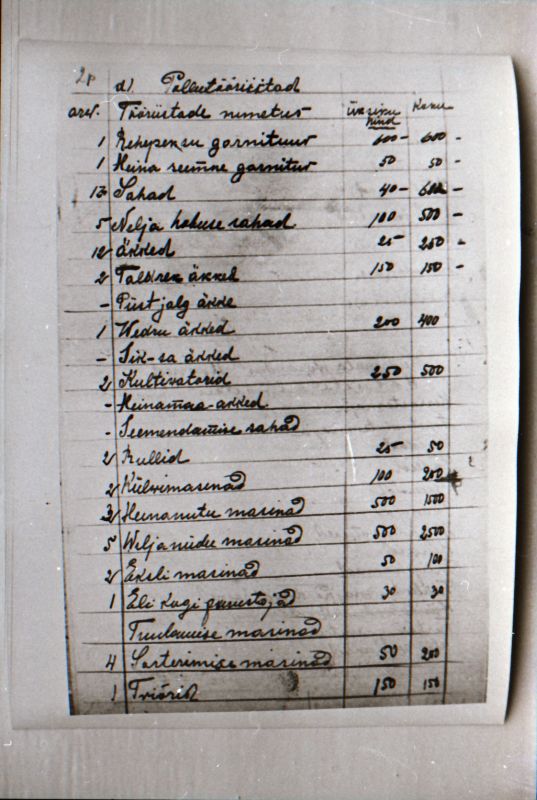 2p d) Põllutööriistad
arv. Tööriistade nimetus Üksiku hind Kokku
1 Rehepeksu garnituur 600 - 600 -
1 Heina seemne garnitur 50 50 -
13 Sahad 40 - 600 -
5 Nelja hobuse sahad 100 500 -
12 äkked 25 - 250 -
2 Taldrek äkked 150 150 -
- Püstjalg äkke
1 Wedru äkked 200 400
- Sik-sa äkked
2 Kultivatorid 250 500
- Heinamaa äkked
- Seemendamise sahad
2 Rullid 25 50
2 Külvimasinad 100 200
3 Heinanutu masinad 500 1500
5 Weljaniidu masinad 500 2500
2 Eksli masinad 50 100
1 Eli kugi purustajad 30 30
Tuulamise masinad
4 Sorterimise masinad 50 200
1 Triörid 150 150